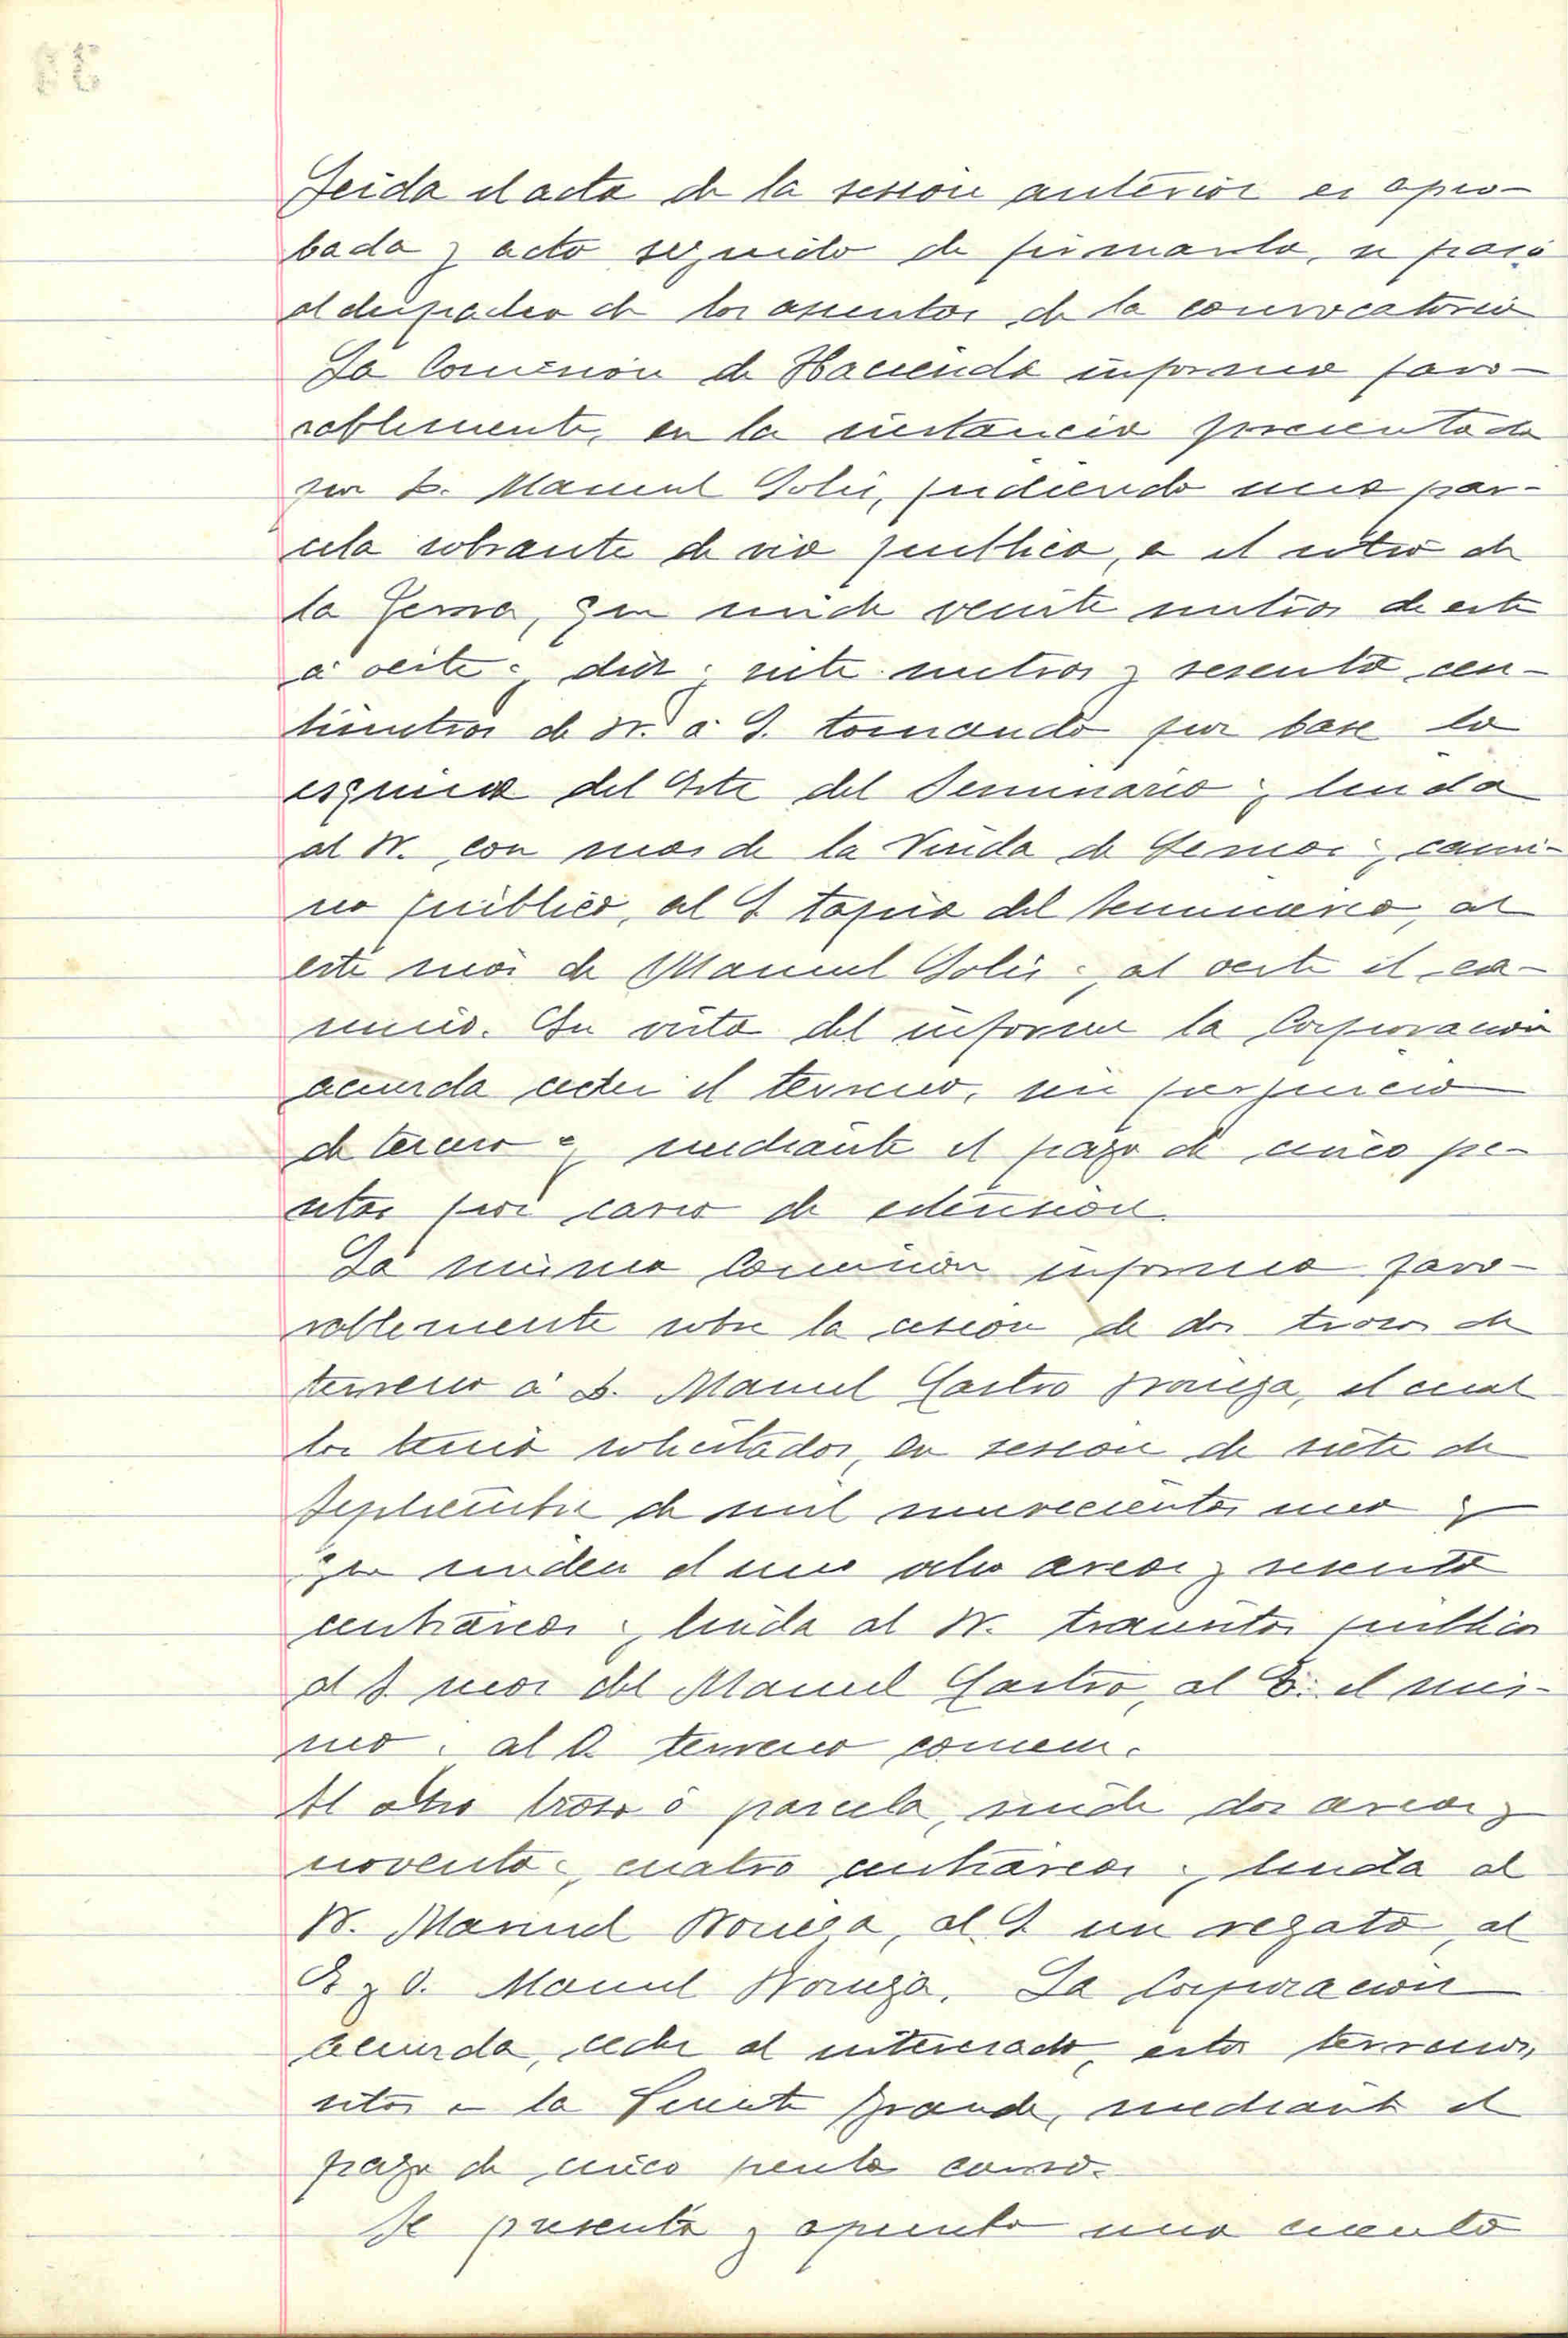 Leida el acta de la sesion anterior es apro-
bada y acto seguido de firmarla, se pasó
al despacho de los asuntos de la convocatoria
La Comision de Hacienda informa favo-
rablemente, en la instancia presentada
por D. Manuel Solis, pidiendo una par-
cela sobrante de via publica, a el sitio de
la Lerna, que mide veinte metros de este
á oeste y diez y siete metros y sesenta cen-
timetros de N. á S. tomando por base la
esquina del Este del Seminario y linda
al N. con mas de la Viuda de Lemos y cami-
no publico, al S tapia del Seminario, al
este mas de Manuel Solis y al oeste el ca-
mino. En vista del informe la Corporacion
acuerda ceder el terreno, sin perjuicio
de tercero y mediante el pago de cinco pe-
setas por carro de extension.
La misma Comision informa favo-
rablemente sobre la cesion de dos trozos de
terreno á D. Manuel Castro Noriega, el cual
los tenia solicitados, en sesion de siete de
Septiembre de mil novecientos uno y
que miden el uno ocho areas y sesenta
centiareas y linda al N. transito publico
al S. mas del Manuel Castro, al E. el mis-
mo y al O. terreno comun.
El otro trozo ó parcela, mide dos areas y
noventa y cuatro centiareas y linda al
N. Manuel Noriega, al S un regato, al
E y O. Manuel Noriega. La Corporacion
acuerda, ceder al interesado, estos terrenos,
sitos a la Fuente Grande, mediante el
pago de cinco pesetas carro.
Se presenta y aprueba una cuenta